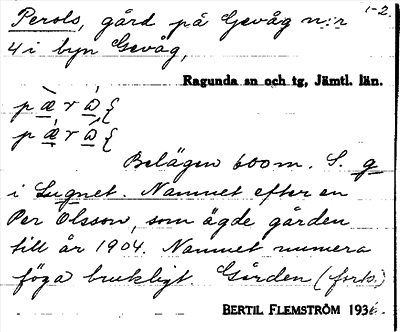 1-2.
Perols, gård på Gevåg n:r
4 i byn Gevåg,
Ragunda sn och tg, Jämtl. län.
Belägen 600 m. S. g
i Lugnet. Namnet efter en
Per Olsson, som ägde gården
till år 1904. Namnet numera
föga brukligt. Gården (forts.)
BERTIL FLEMSTRÖM 1936.